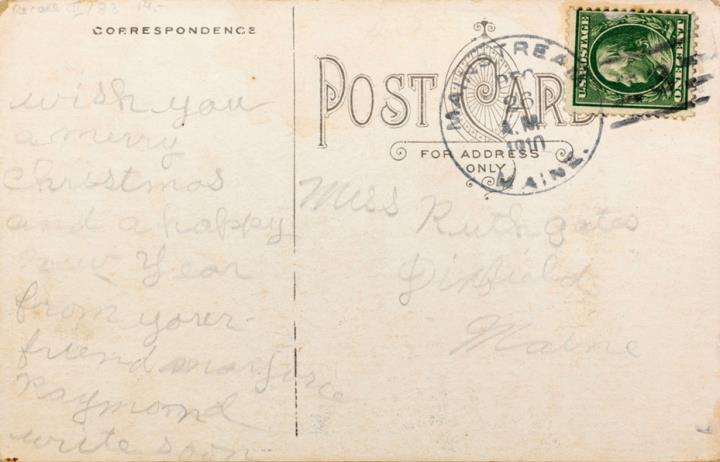 CORRESPONDENCE
wish you
a merry
Christmas
and a happy
new Year
from your
friend Marjorie
Raymond
write soon
POST CARD
FOR ADDRESS
ONLY
MAINSTREAM
DEC
26
A.M.
1910
MAINE.
U.S. POSTAGE
ONE CENT
Miss Ruth gates
Maine